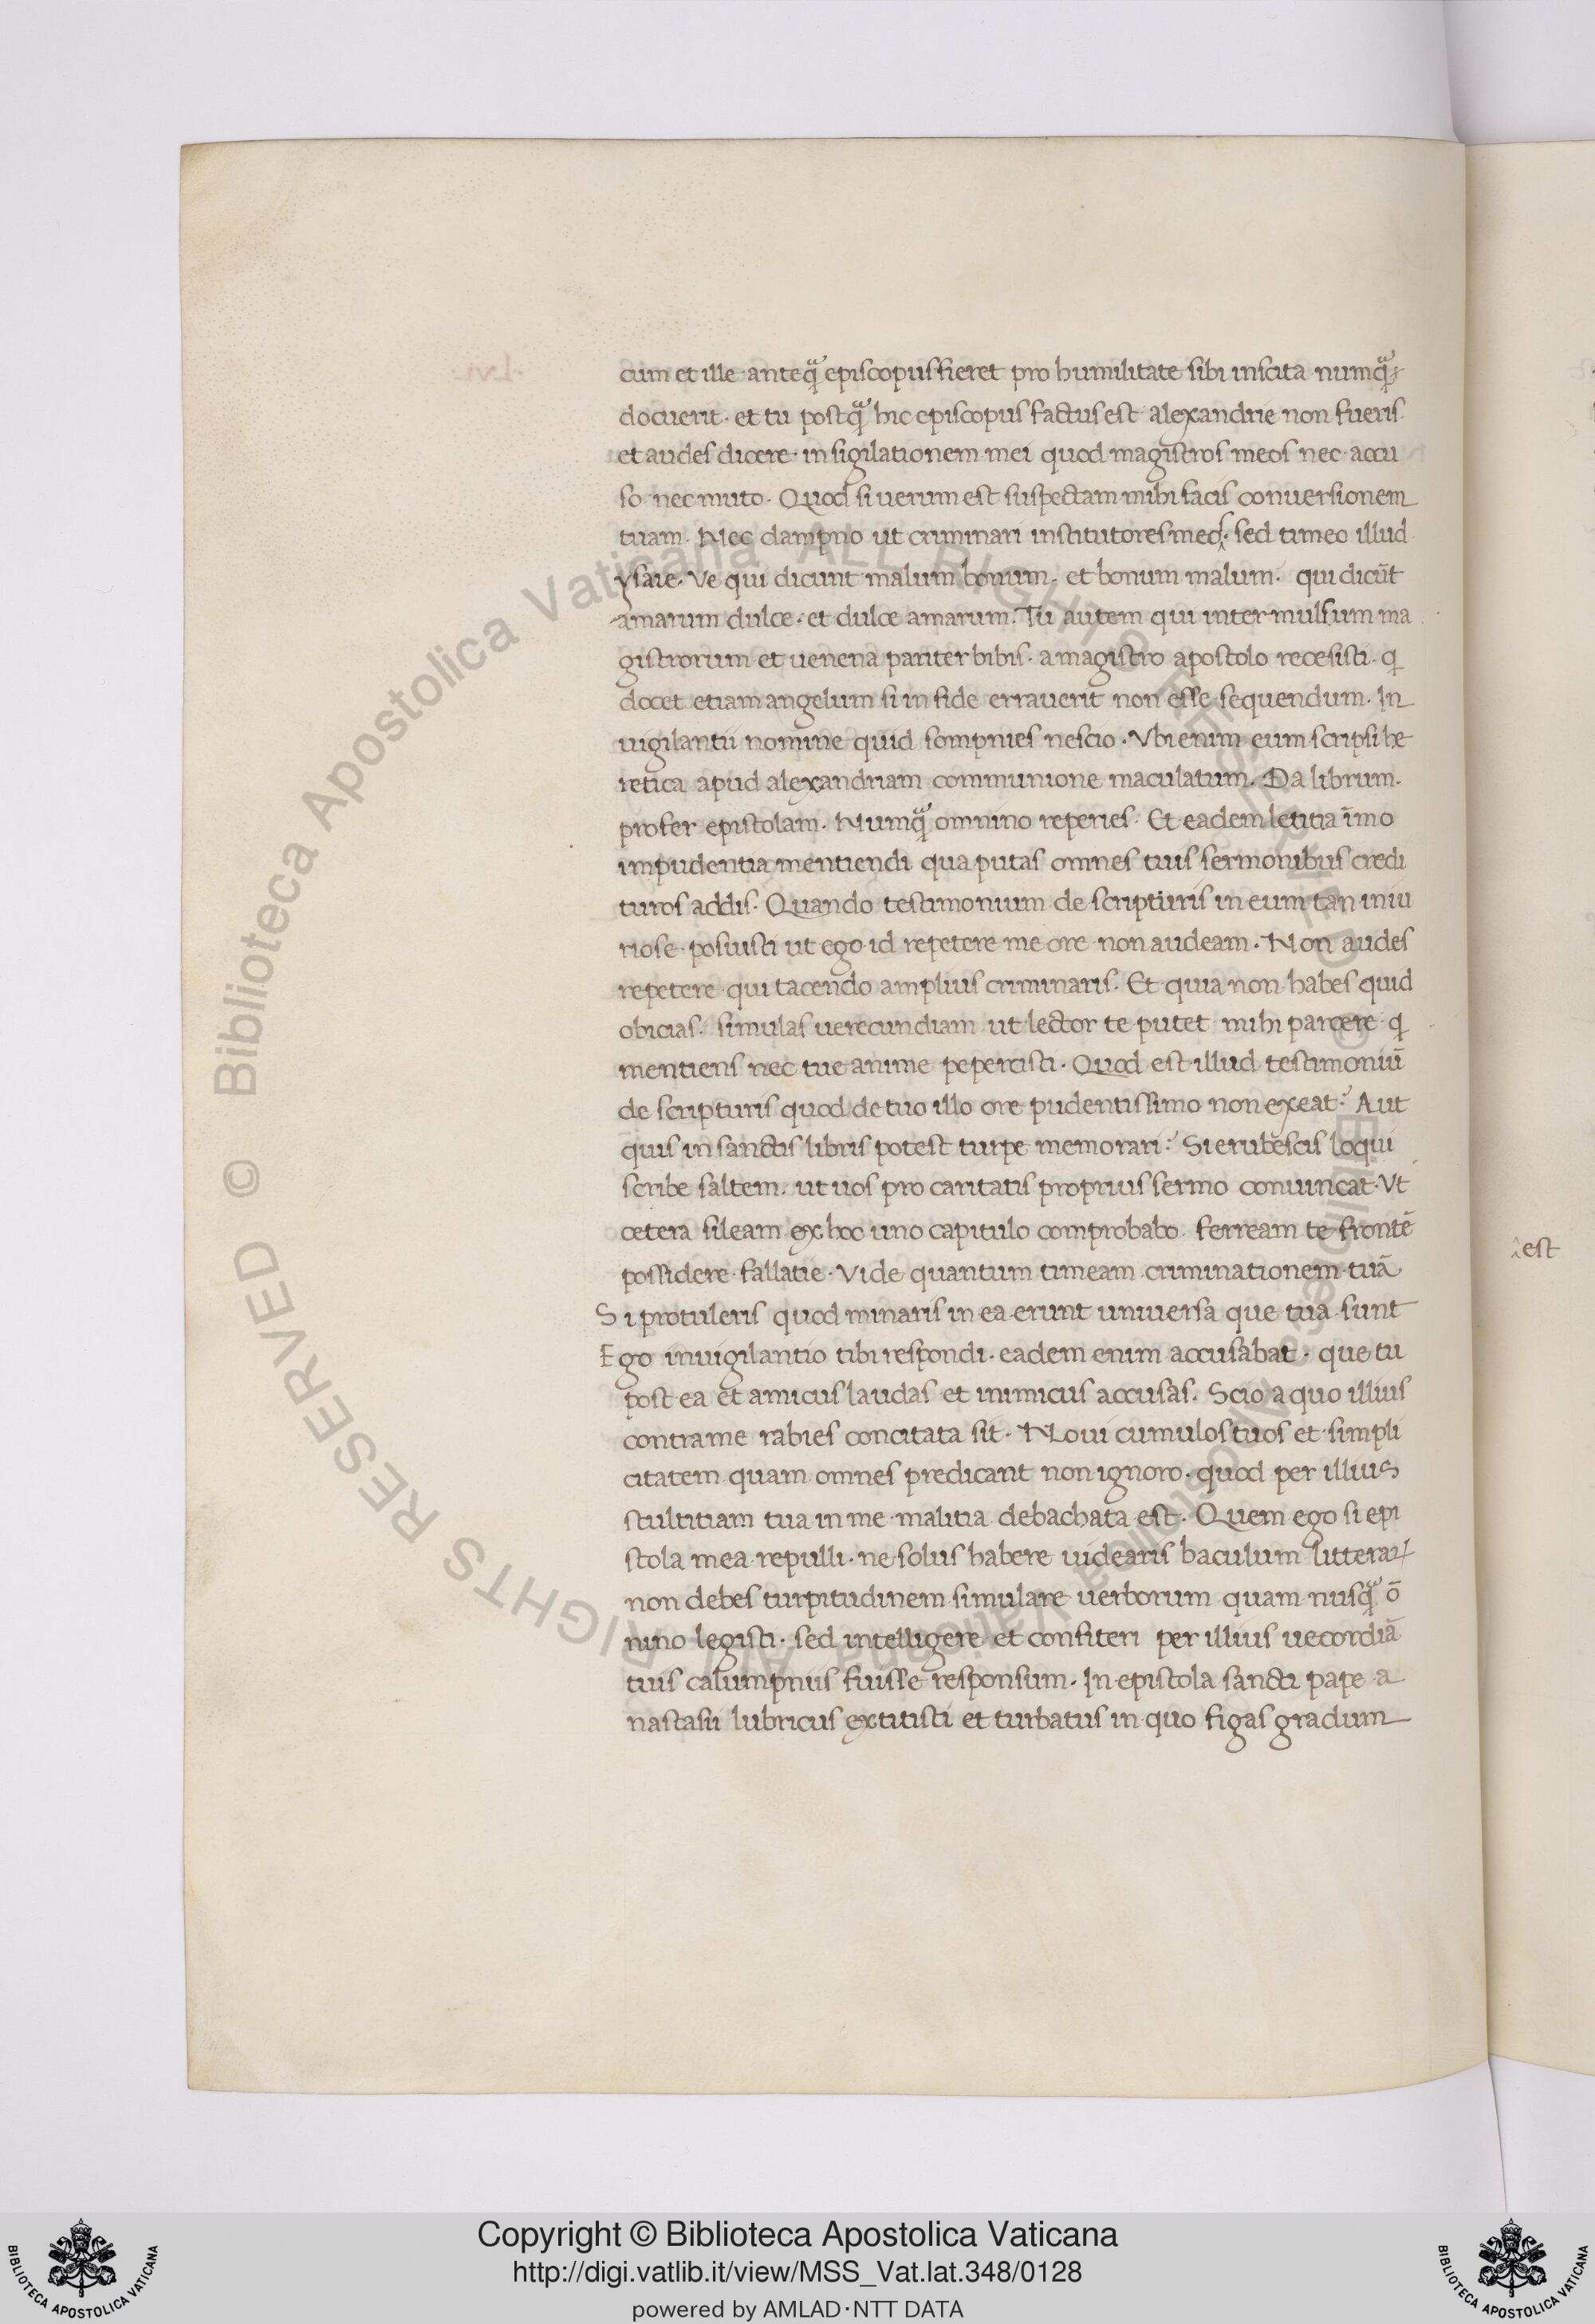 cum et ille anteq̃ episcopus fieret pro humilitate sibi inscita numq̃
docuerit · et tu postq̃ hic episcopus factus est alexandrie non fueris
et audes dicere · in sigilationem mei quod magistros meos nec accu
so nec muto · Quod si uerum est suspectam mihi facis conuersionem
tuam · Nec dampno ut criminari institutores meos · sed timeo illud
ysaie · Ve qui dicunt malum bonum · et bonum malum · qui dicūt
amarum dulce · et dulce amarum. Tu autem qui inter mulsum ma
gistrorum et uenena pariter bibis · a magistro apostolo recesisti · q
docet etiam angelum si in fide errauerit non esse sequendum · In
uigilantii nomine quid sompnies nescio · Vbi enim eum scripsi he
retica apud alexandriam communione maculatum. Da librum.
profer epistolam · Numq̃ omnino reperies · Et eadem letitia īmo
impudentia mentiendi qua putas omnes tuis sermonibus credi
turos addis · Quando testimonium de scripturis in eum tan iniu
riose posuisti ut ego id repetere me ore non audeam · Non audes
repetere qui tacendo amplius criminaris · Et quia non habes quid
obicias · simulas uerecundiam ut lector te putet mihi parcere q
mentiens nec tue anime pepercisti · Quod est illud testimoniū
de scripturis quod de tuo illo ore pudentissimo non exeat? Aut
quis in sanctis libris potest turpe memorari? Si erubescis loqui
scribe saltem · ut uos pro caritatis proprius sermo conuincat · Vt
cetera sileam ex hoc uno capitulo comprobabo ferream te frontē
possidere fallatie · Vide quantum timeam criminationem tuā
Si protuleris quod minaris in ea erunt uniuersa que tua sunt
est
Ego in uigilantio tibi respondi · eadem enim accusabat · que tu
post ea et amicus laudas et inimicus accusas · Scio a quo illius
contra me rabies concitata sit · Noui cumulos tuos et simpli
citatem quam omnes predicant non ignoro · quod per illius
stultitiam tua in me malitia debachata est · Quem ego si epi
stola mea repulli · ne solus habere uidearis baculum litteraꝝ
non debes turpitudinem simulare uerborum quam nusq̃ ō
nino legisti · sed intelligere et confiteri per illius uecordiā
tuis calumpniis fuisse responsum · In epistola sancti pape a
nastasii lubricus extitisti et turbatus in quo figas gradum
Copyright © Biblioteca Apostolica Vaticana
http://digi.vatlib.it/view/MSS_Vat.lat.348/0128
powered by AMLAD·NTT DATA
BIBLIOTECA APOSTOLICA VATICANA
BIBLIOTECA APOSTOLICA VATICANA
© Biblioteca Apostolica Vaticana ALL RIGHTS RESERVED